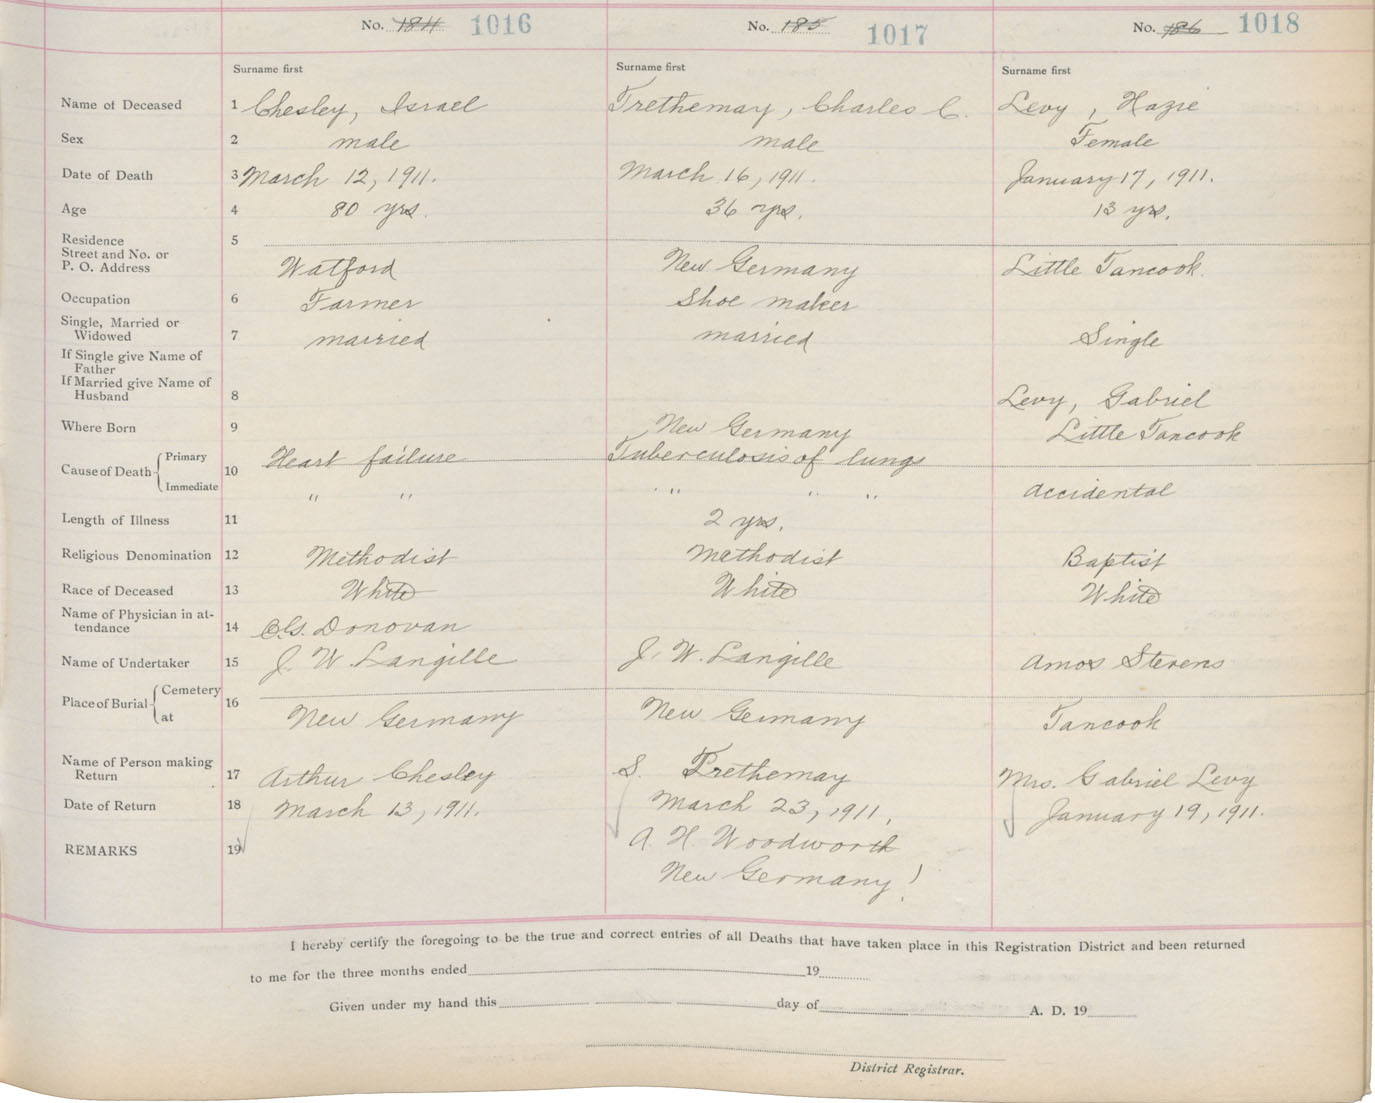 No. 184 1016 No. 185 1017 No. 186 1018
Surname first Surname first Surname first
Name of Deceased 1 Chesley, Israel Trethemay, Charles C. Levy, Hazie
Sex 2 male male Female
Date of Death 3 March 12, 1911. March 16, 1911. January 17, 1911.
Age 4 80 yrs. 36 yrs. 13 yrs.
Residence 5
Street and No. or
P. O. Address Watford New Germany Little Tancook.
Occupation 6 Farmer Shoe maker
Single, Married or
Widowed 7 married married Single
If Single give Name of
Father
If Married give Name of
Husband 8 Levy, Gabriel
Where Born 9 New Germany Little Tancook
Cause of Death Primary 10 Heart failure Tuberculosis of lungs
Immediate " " " " " accidental
Length of Illness 11 2 yrs.
Religious Denomination 12 Methodist Methodist Baptist
Race of Deceased 13 White White White
Name of Physician in at-
tendance 14 Donovan
Name of Undertaker 15 J. W. Langille J. W. Langille Amos Stevens
Place of Burial Cemetery 16
at New Germany New Germany Tancook
Name of Person making
Return 17 Arthur Chesley S. Trethemay Mrs. Gabriel Levy
Date of Return 18 March 13, 1911. March 23, 1911, January 19, 1911.
REMARKS 19 A. H. Woodworth
New Germany!
I hereby certify the foregoing to be the true and correct entries of all Deaths that have taken place in this Registration District and been returned
to me for the three months ended 19
Given under my hand this day of A. D. 19
District Registrar.